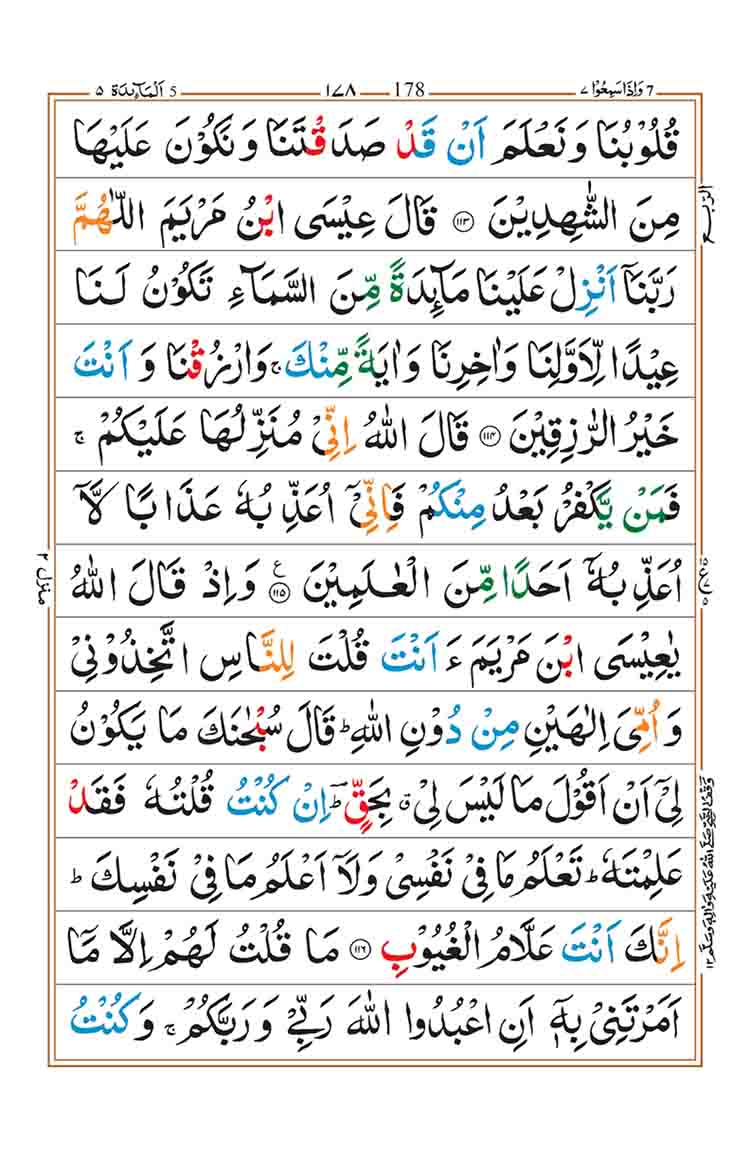 وَاِذَا سَمِعُوْا ٧ 7 178 ١٧٨ 5 اَلْمَآئِدَة ٥
قُلُوْبُنَا وَ نَعْلَمَ اَنْ قَدْ صَدَقْتَنَا وَ نَكُوْنَ عَلَيْهَا
مِنَ الشّٰهِدِيْنَ ۝۱۱۳ قَالَ عِيْسَى ابْنُ مَرْيَمَ اللّٰهُمَّ
رَبَّنَاۤ اَنْزِلْ عَلَيْنَا مَآئِدَةً مِّنَ السَّمَآءِ تَكُوْنُ لَنَا
عِيْدًا لِّاَوَّلِنَا وَاٰخِرِنَا وَاٰيَةً مِّنْكَ ۚ وَارْزُقْنَا وَ اَنْتَ
خَيْرُ الرّٰزِقِيْنَ ۝۱۱۴ قَالَ اللّٰهُ اِنِّيْ مُنَزِّلُهَا عَلَيْكُمْ ۚ
فَمَنْ يَّكْفُرْ بَعْدُ مِنْكُمْ فَاِنِّيْۤ اُعَذِّبُهٗ عَذَابًا لَّاۤ
اُعَذِّبُهٗۤ اَحَدًا مِّنَ الْعٰلَمِيْنَ ۝۱۱۵ ع وَاِذْ قَالَ اللّٰهُ
يٰعِيْسَى ابْنَ مَرْيَمَ ءَ اَنْتَ قُلْتَ لِلنَّاسِ اتَّخِذُوْنِيْ
وَ اُمِّيَ اِلٰهَيْنِ مِنْ دُوْنِ اللّٰهِ ؕ قَالَ سُبْحٰنَكَ مَا يَكُوْنُ
لِيْۤ اَنْ اَقُوْلَ مَا لَيْسَ لِيْ ۗ بِحَقٍّ ؕ اِنْ كُنْتُ قُلْتُهٗ فَقَدْ
عَلِمْتَهٗ ؕ تَعْلَمُ مَا فِيْ نَفْسِيْ وَلَاۤ اَعْلَمُ مَا فِيْ نَفْسِكَ ؕ
اِنَّكَ اَنْتَ عَلَّامُ الْغُيُوْبِ ۝۱۱۶ مَا قُلْتُ لَهُمْ اِلَّا مَاۤ
اَمَرْتَنِيْ بِهٖۤ اَنِ اعْبُدُوا اللّٰهَ رَبِّيْ وَ رَبَّكُمْ ۚ وَ كُنْتُ
الربع
منزل ٢